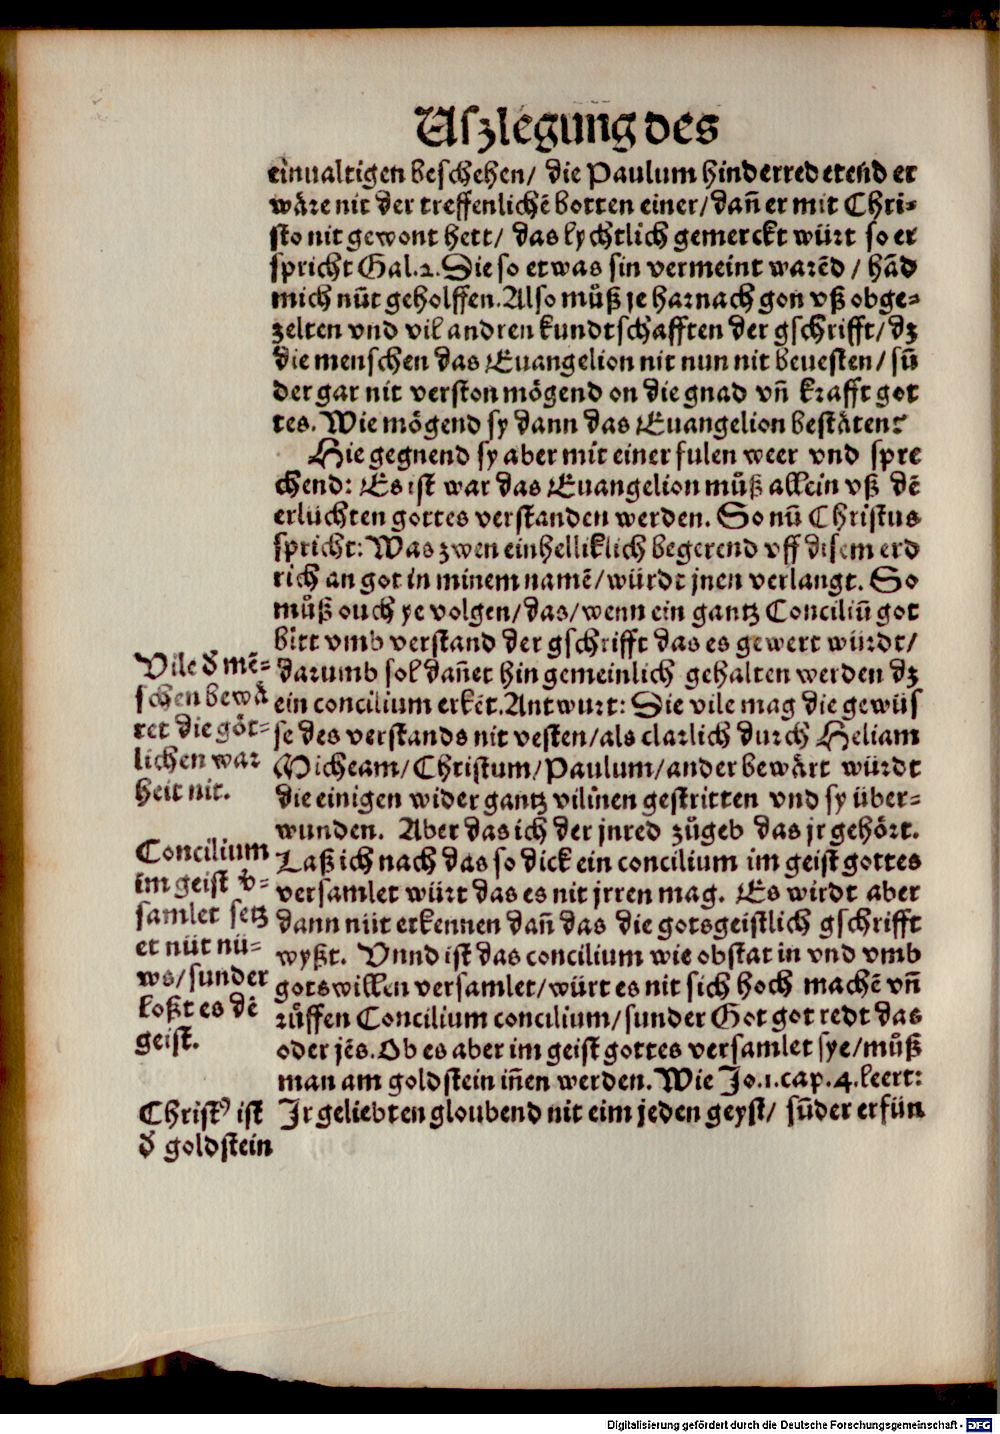 Uszlegung des
einualtigen beschehen/ die Paulum hinderredetend er
wäre nit der treffenlichē botten einer/dañ er mit Chri-
sto nit gewont hett/ das lychtlich gemerckt würt so er
spricht Gal.2.Die so etwas sin vermeint warēd / hād
mich nüt geholffen.Also můß je harnach gon vß obge-
zelten vnd vil andren kundtschafften der gschrifft/dz
die menschen das Euangelion nit nun nit beuesten/ sū
der gar nit verston mögend on die gnad vñ krafft got
tes. Wie mögend sy dann das Euangelion bestäten?
Hie gegnend sy aber mit einer fulen weer vnd spre
chend: Es ist war das Euangelion můß allein vß dē
erlüchten gottes verstanden werden. So nū Christus
spricht: Was zwen einhelliklich begerend vff disem erd
rich an got in minem namē/würdt jnen verlangt. So
můß ouch ye volgen/das/wenn ein gantz Conciliū got
bitt vmb verstand der gschrifft das es gewert würdt/
darumb sol dañet hin gemeinlich gehalten werden dz
ein concilium erkēt.Antwurt: Die vile mag die gewüs
se des verstands nit vesten/als clarlich durch Heliam
Micheam/Christum/Paulum/ander bewärt würdt
die einigen wider gantz vilinen gestritten vnd sy über-
wunden. Aber das ich der jnred zůgeb das jr gehört.
Laß ich nach das so dick ein concilium im geist gottes
versamlet würt das es nit jrren mag. Es wirdt aber
dann nüt erkennen dañ das die gotsgeistlich gschrifft
wyßt. Vnnd ist das concilium wie obstat in vnd vmb
gotswillen versamlet/würt es nit sich hoch machē vñ
rüffen Concilium concilium/sunder Got got redt das
oder jēs.Ob es aber im geist gottes versamlet sye/můß
man am goldstein iñen werden.Wie Jo.1.cap.4.leert:
Jr geliebten gloubend nit eim jeden geyst/ sūder erfün
Vile d' mē-
schen bewä
ret die göt-
lichen war
heit nit.
Concilium
im geist v-
samlet setz
et nüt nü-
ws/sunder
loßt es dē
geist.
Christꝰ ist
d' goldstein
Digitalisierung gefördert durch die Deutsche Forschungsgemeinschaft - DFG